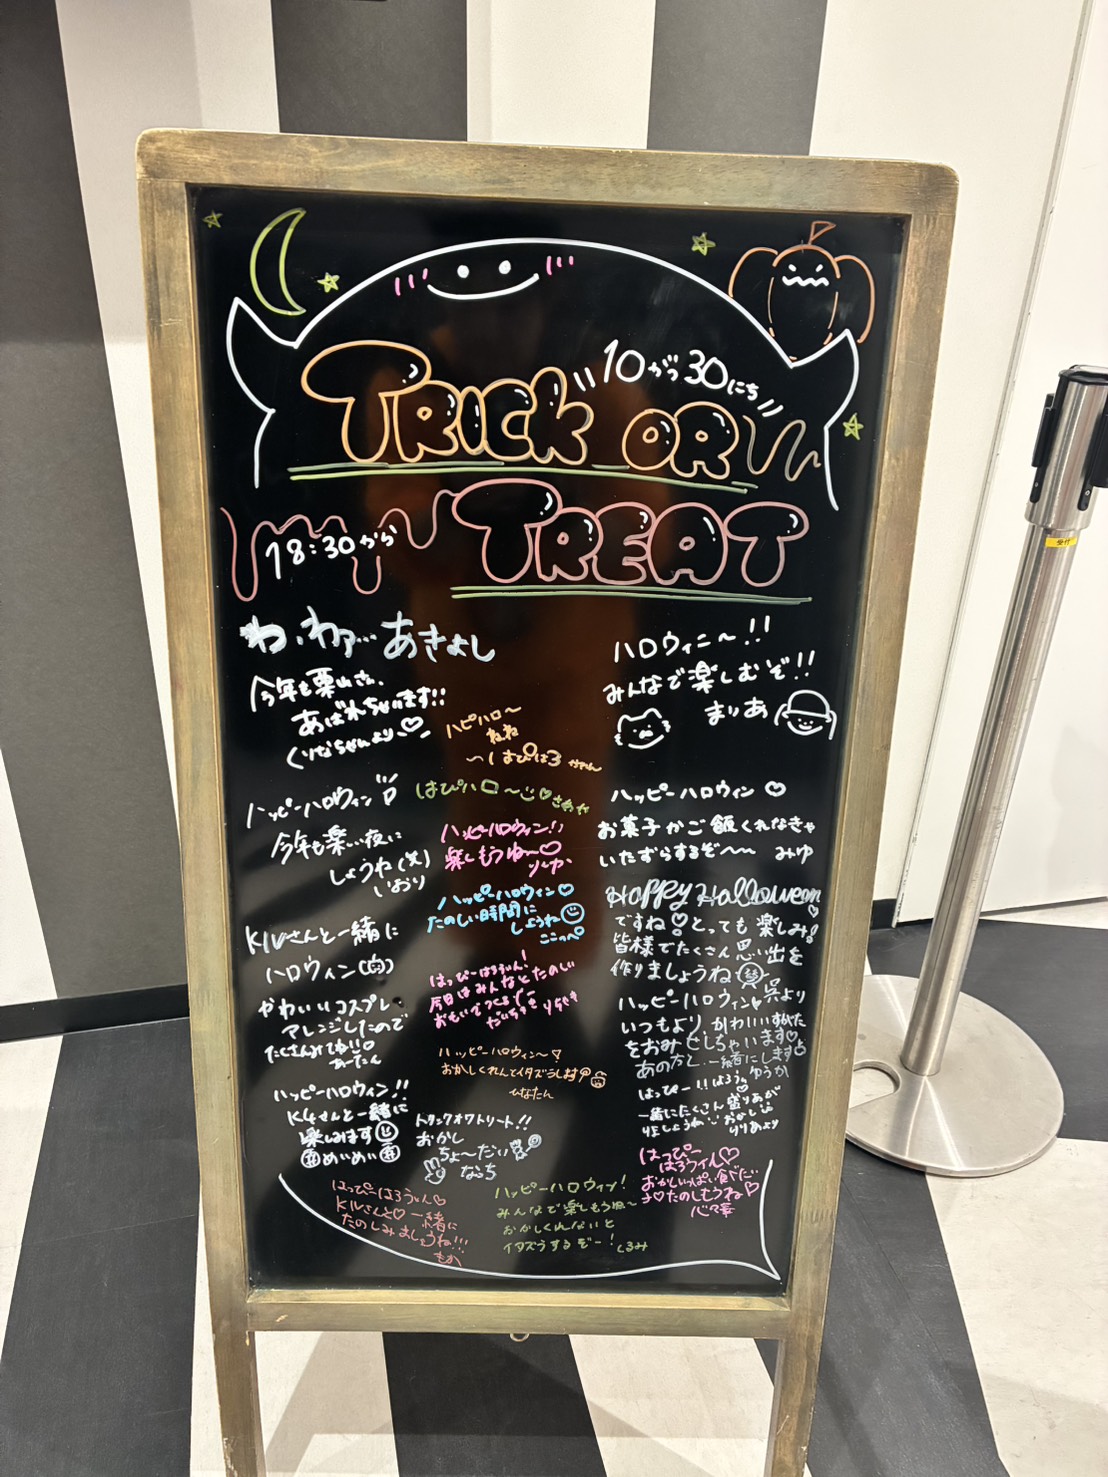 10がつ30にち
TRICK OR
TREAT
18:30から
わ、わァ…あきよし
今年も栗山さん、
あばれちゃいます!!
くりなちゃんより♡
ハピハロ〜
ねね
ハロウィニ〜!!
みんなで楽しむぞ!!
まりあ
ハッピーハロウィン
今年も楽しい夜に
しょうね(笑)
しおり
はぴハロ〜♡さあや
ハッピーハロウィン!!
楽しもうね〜♡
ハッピーハロウィン♡
たのしい時間に
しようね
ここっぺ
はっぴーはろうぃん!
今日はみんなとたのしい
おもいでつくるぞー
だいすき りるるき
ハッピーハロウィン〜!
おかしくれんとイタズラします
ひなたん
トリックオアトリート!!
おかし
ちょ〜だい
なっち
ハッピーハロウィン ♡
お菓子かご飯くれなきゃ
いたずらするぞ〜〜 みゆ
Happy Halloween
ですね♡とっても楽しみ!
皆様でたくさん思い出を
作りましょうね
ハッピーハロウィン 呉より
いつもより、かわいいすがた
をおみせしちゃいます♡
あの方と、一緒にします
ゆうか
はっぴー!!はろうぃ
一緒にたくさん盛りあが
りましょうね おかし
りりあより
と一緒に
ハロウィン
かわいいコスプレ
アレンジしたので
たくさんみてね!!♡
あーたん
ハッピーハロウィン!!
さんと一緒に
楽しみます
めいめい
はっぴーはろうぃん♡
さんと♡一緒に
たのしみましょうね!!!
もか
ハッピーハロウィン!
みんなで楽しもうね〜
おかしくれないと
イタズラするぞー! くるみ
はっぴー
はろうぃん♡
おかしいっぱい食べたい
♡たのしもうね♡